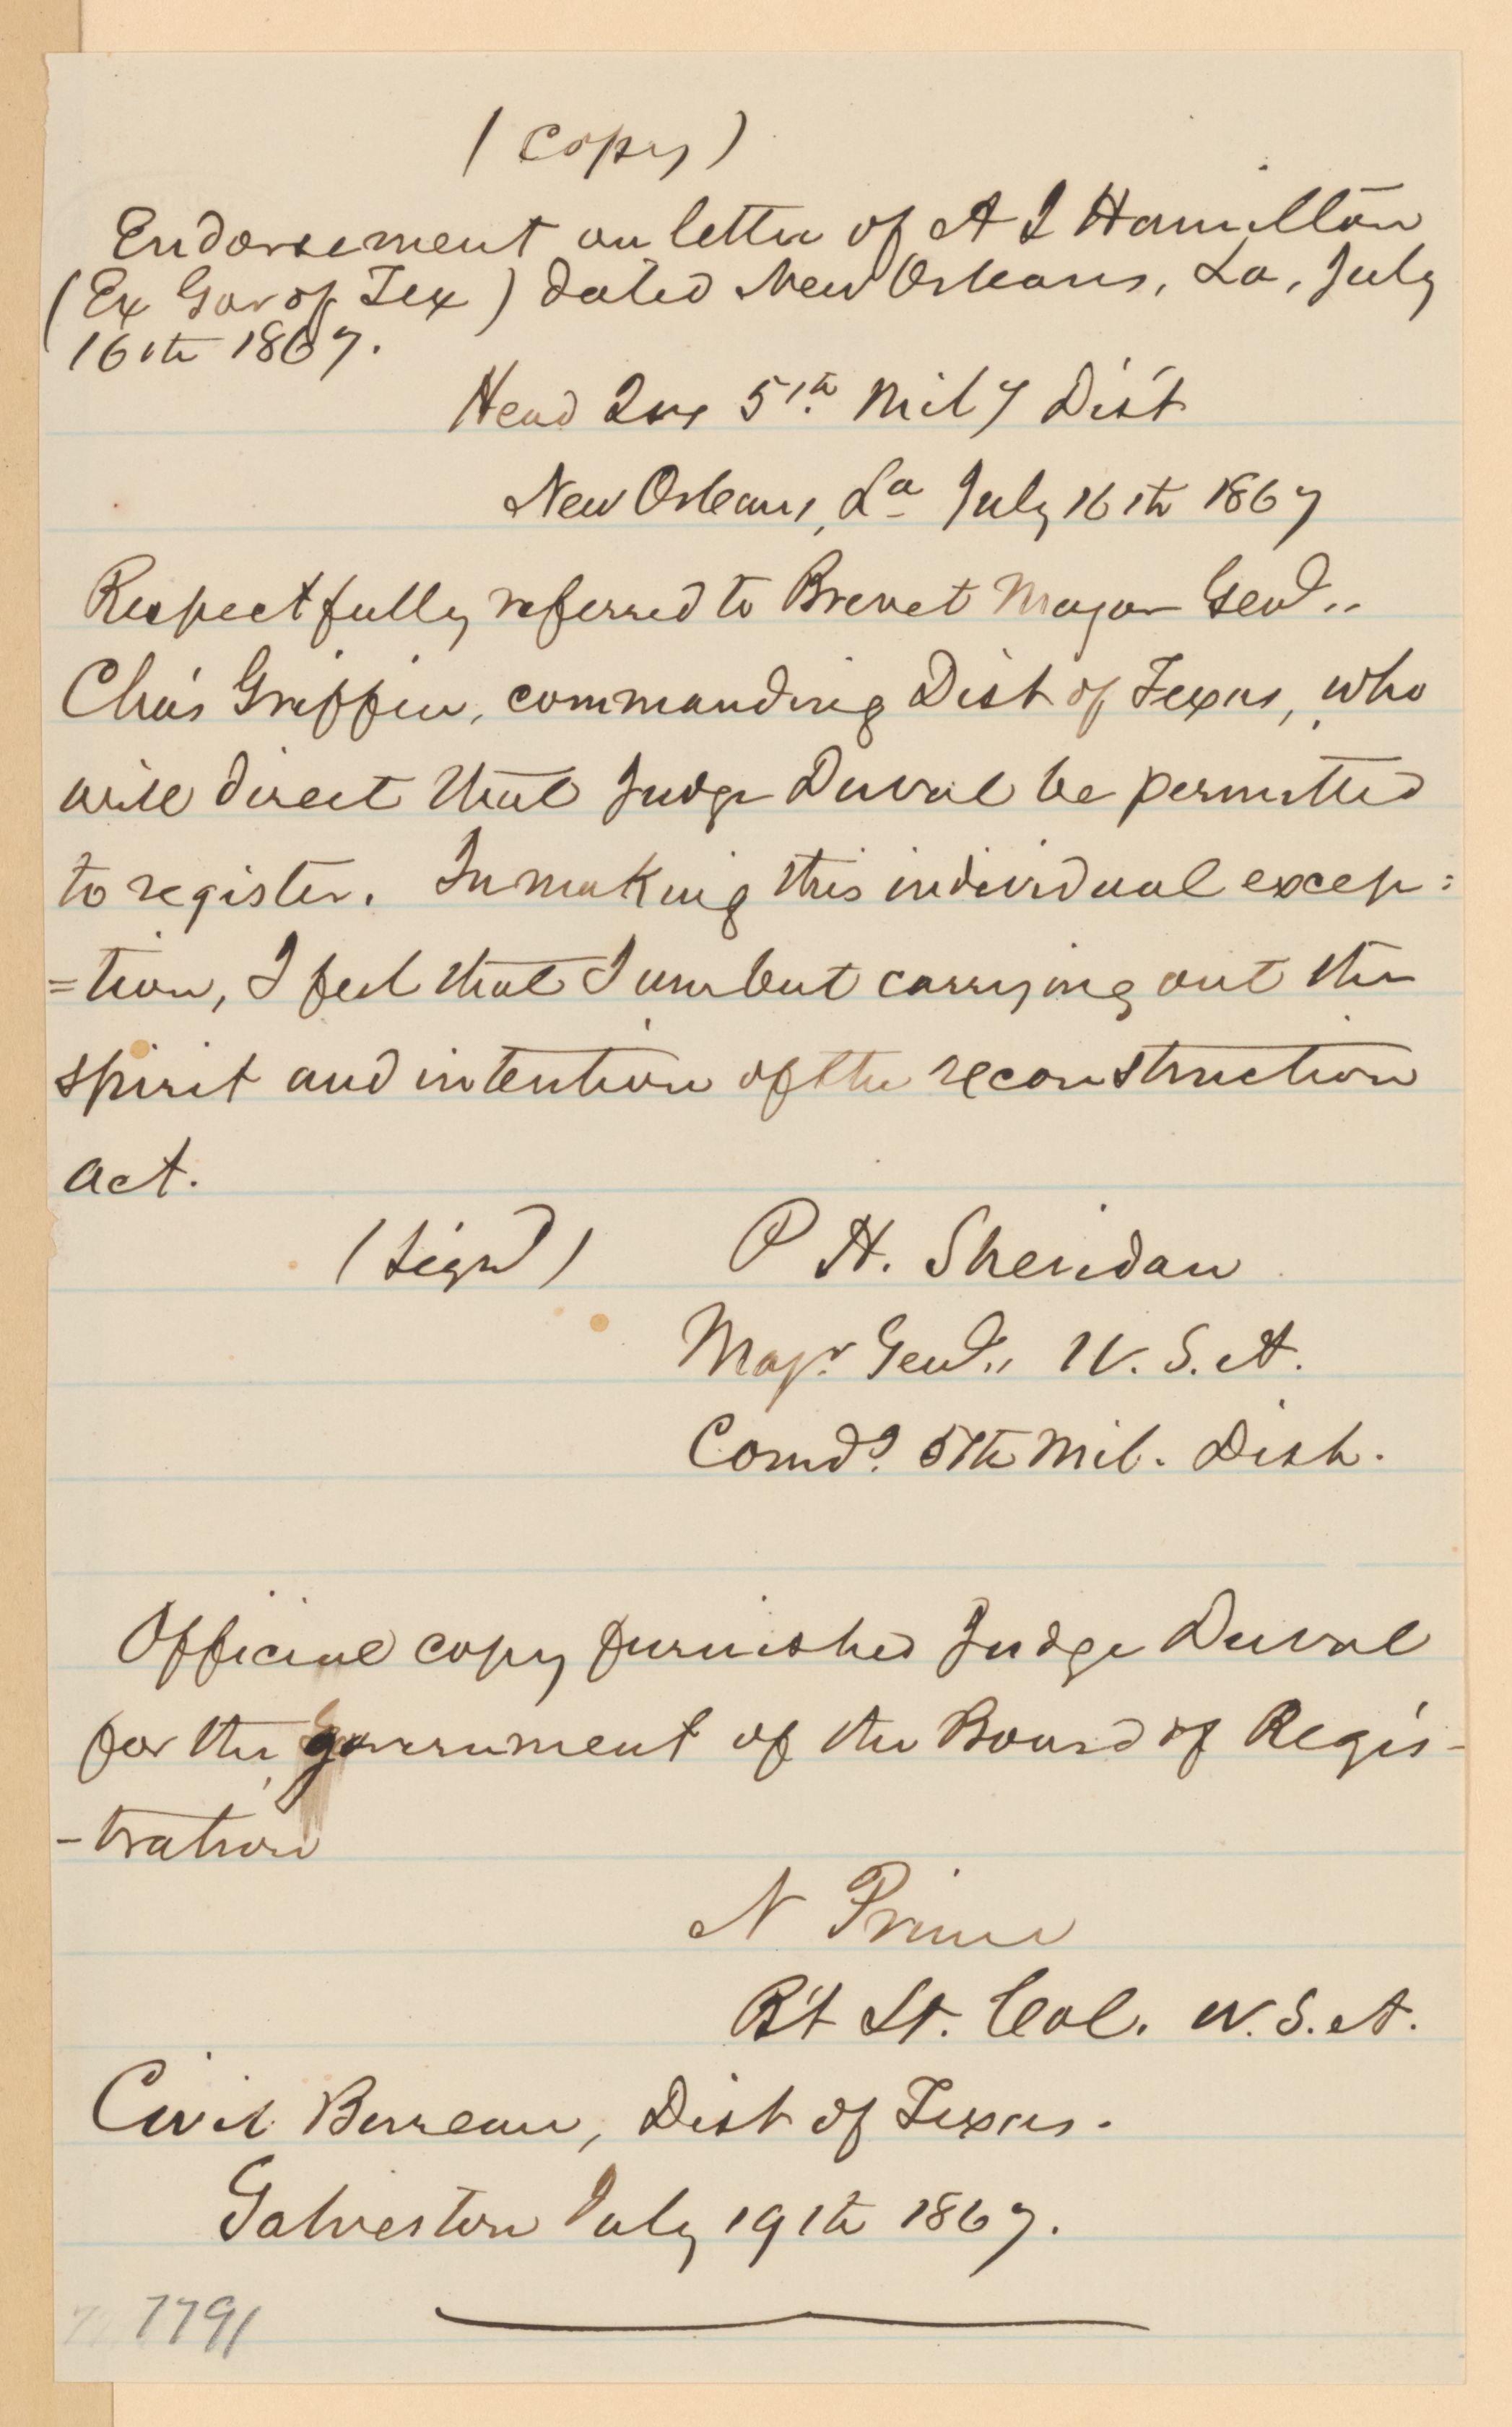 (Copy)
Endorsement on letter of A J Hamilton
(Ex Gov of Tex) dated New Orleans, La, July
16th 1867.
Head Qrs 5th Mil'y Dist
New Orleans, La July 16th 1867
Respectfully referred to Brevet Major Genl..
Chas Griffin, commanding Dist of Texas, who
will direct that Judge Duval be permitted
to register. In making this individual excep=
=tion, I feel that I am but carrying out the
spirit and intention of the reconstruction
act.
(Signd) P H. Sheridan
Majr. Genl.. U.S.A.
Comdg. 5th Mil. Dist.
Official copy furnished Judge Duval
for the government of the Board of Regis-
-tration
N Prime
B't Lt. Col. U.S.A.
Civil Bureau, Dist of Texas.
Galveston July 19th 1867.
7791